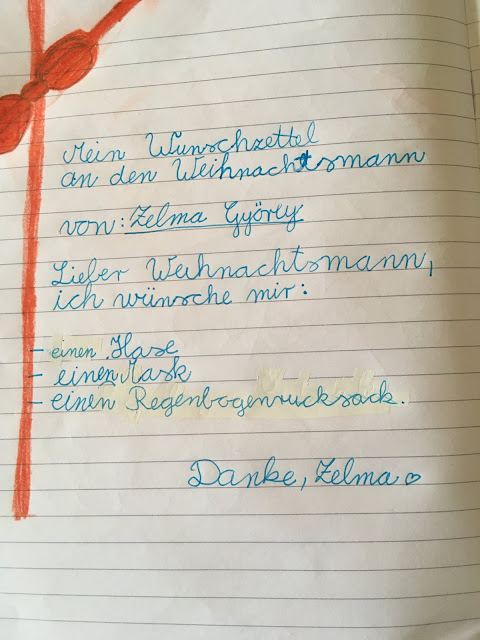 Mein Wunschzettel
an den Weihnachtsmann
von: Zelma Györey
Lieber Weihnachtsmann,
ich wünsche mir:
- einen Hase
- einen Mask
- einen Regenbogenrucksack.
Danke, Zelma ♡